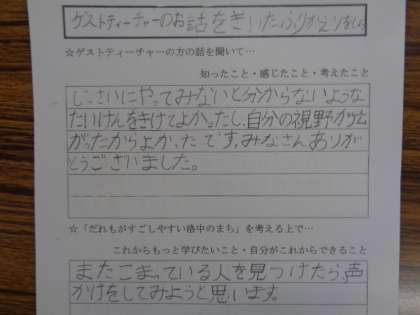 ゲストティーチャーのお話をきいたふりかえりをしよう
☆ゲストティーチャーの方の話を聞いて…
知ったこと・感じたこと・考えたこと
じっさいにやってみないと分からないような
たいけんをきけてよかったし、自分の視野が広
がったからよかったです。みなさんありが
とうございました。
☆「だれもがすごしやすい洛中のまち」を考える上で…
これからもっと学びたいこと・自分がこれからできること
またこまっている人を見つけたら、声
かけをしてみようと思います。